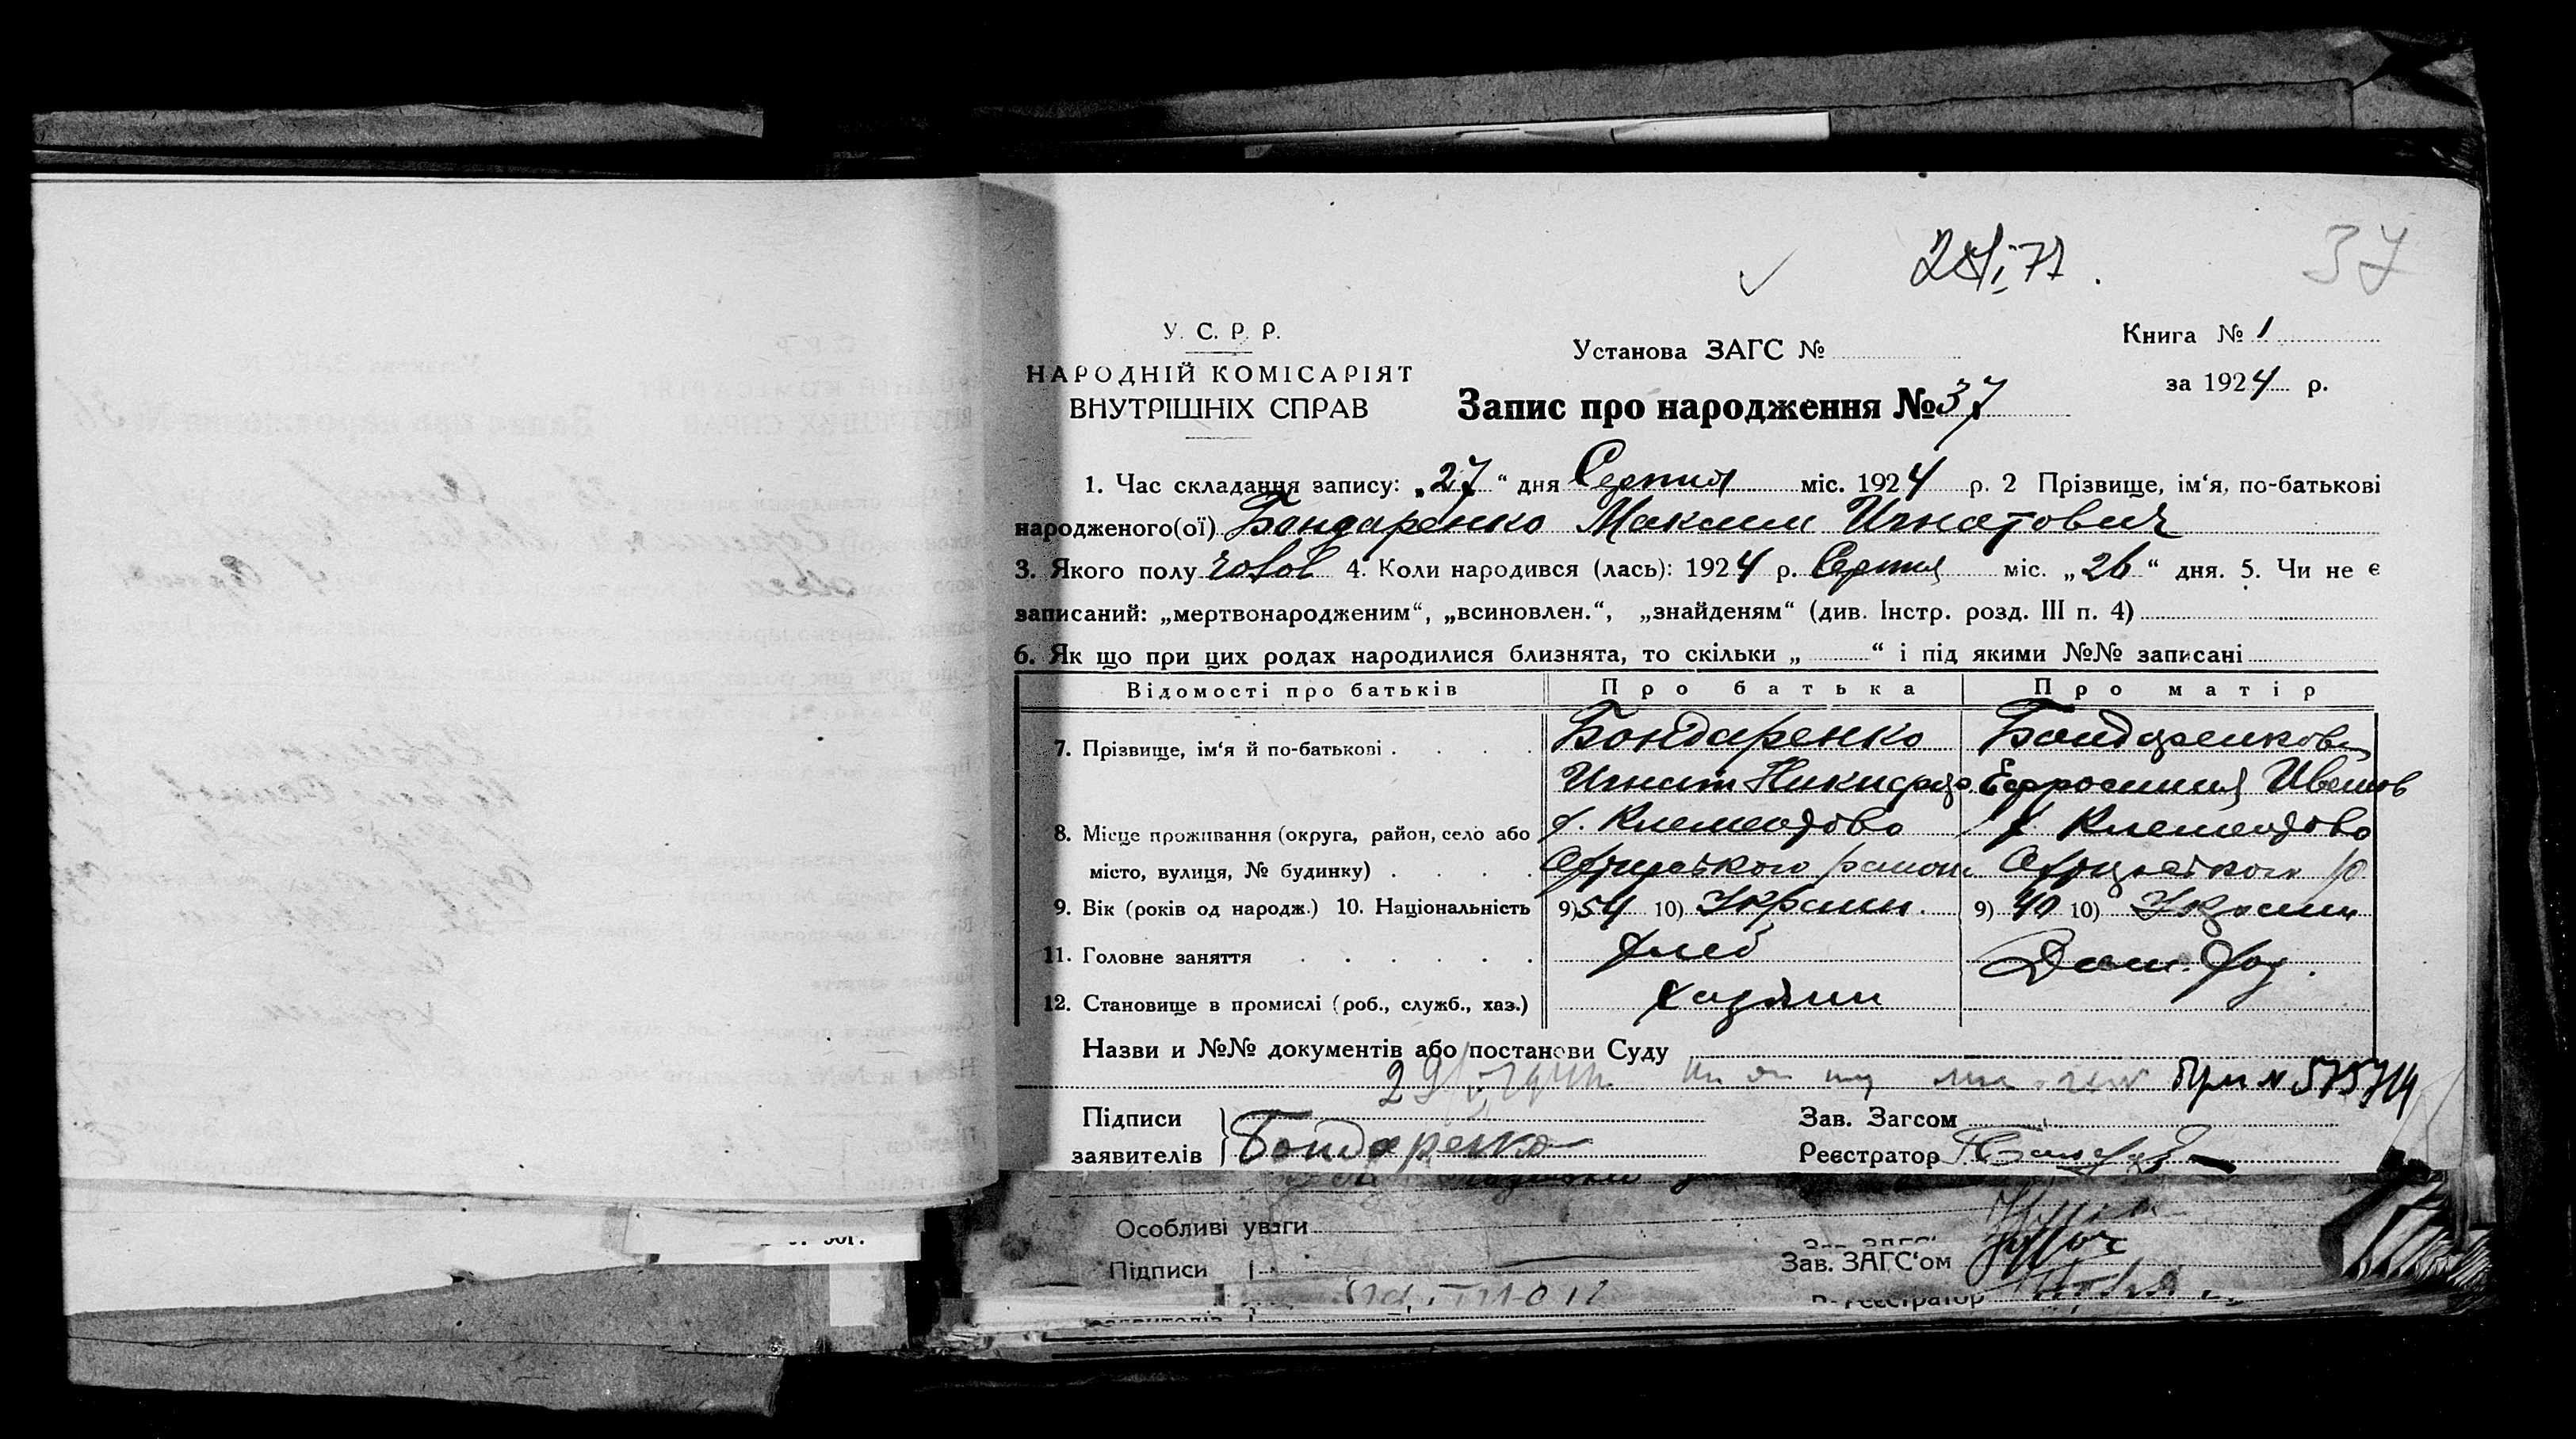 37
У. С. Р. Р.
НАРОДНІЙ КОМІСАРІЯТ
ВНУТРІШНІХ СПРАВ
Установа ЗАГС №
Книга № 1
за 1924 р.
Запис про народження № 37
1. Час складання запису: „27“ дня Серпня міс. 1924 р. 2 Прізвище, ім‘я, по-батькові
народженого(ої) Бондаренко Максим Игнатович
3. Якого полу чолов 4. Коли народився (лась): 1924 р. Серпня міс. „26“ дня. 5. Чи не є
записаний: „мертвонародженим“, „всиновлен.“, „знайденям“ (див. Інстр. розд. III п. 4)
6. Як що при цих родах народилися близнята, то скільки „ “ і під якими №№ записані
Відомості про батьків Про батька Про матір
7. Прізвище, ім‘я й по-батькові . . . . Бондаренко Бондаренкова
Игнат Никифор Ефросиния Иванов
8. Місце проживання (округа, район, село або
місто, вулиця, № будинку) . . . . района
9. Вік (років од народж.) 10. Національність 9) 54 10) Украин. 9) 40 10) Украин
11. Головне заняття . . . . . . хлеб Дом.
12. Становище в промислі (роб., служб., хаз.) хазяин
Назви и №№ документів або постанови Суду
№ 575714
Підписи
заявителів } Бондаренко
Зав. Загсом
Реєстратор
Особливі уваги
Підписи
Зав. ЗАГС‘ом